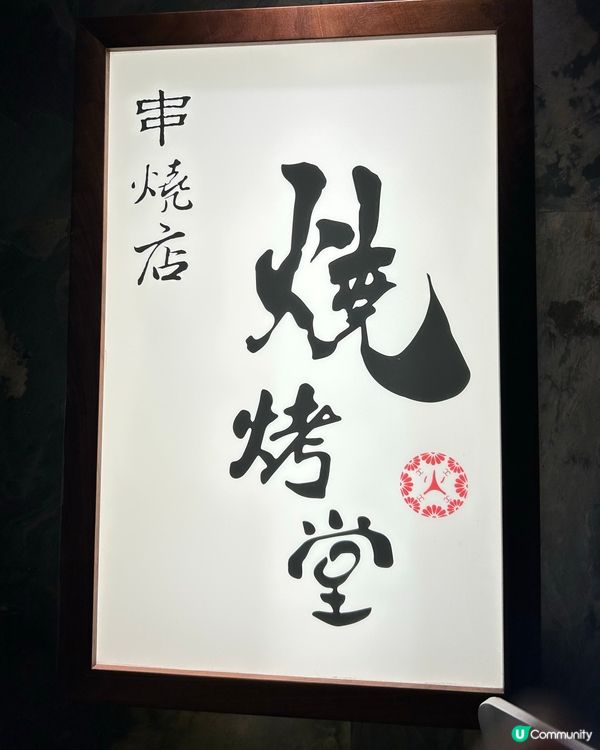 燒烤堂
串燒店
U Community